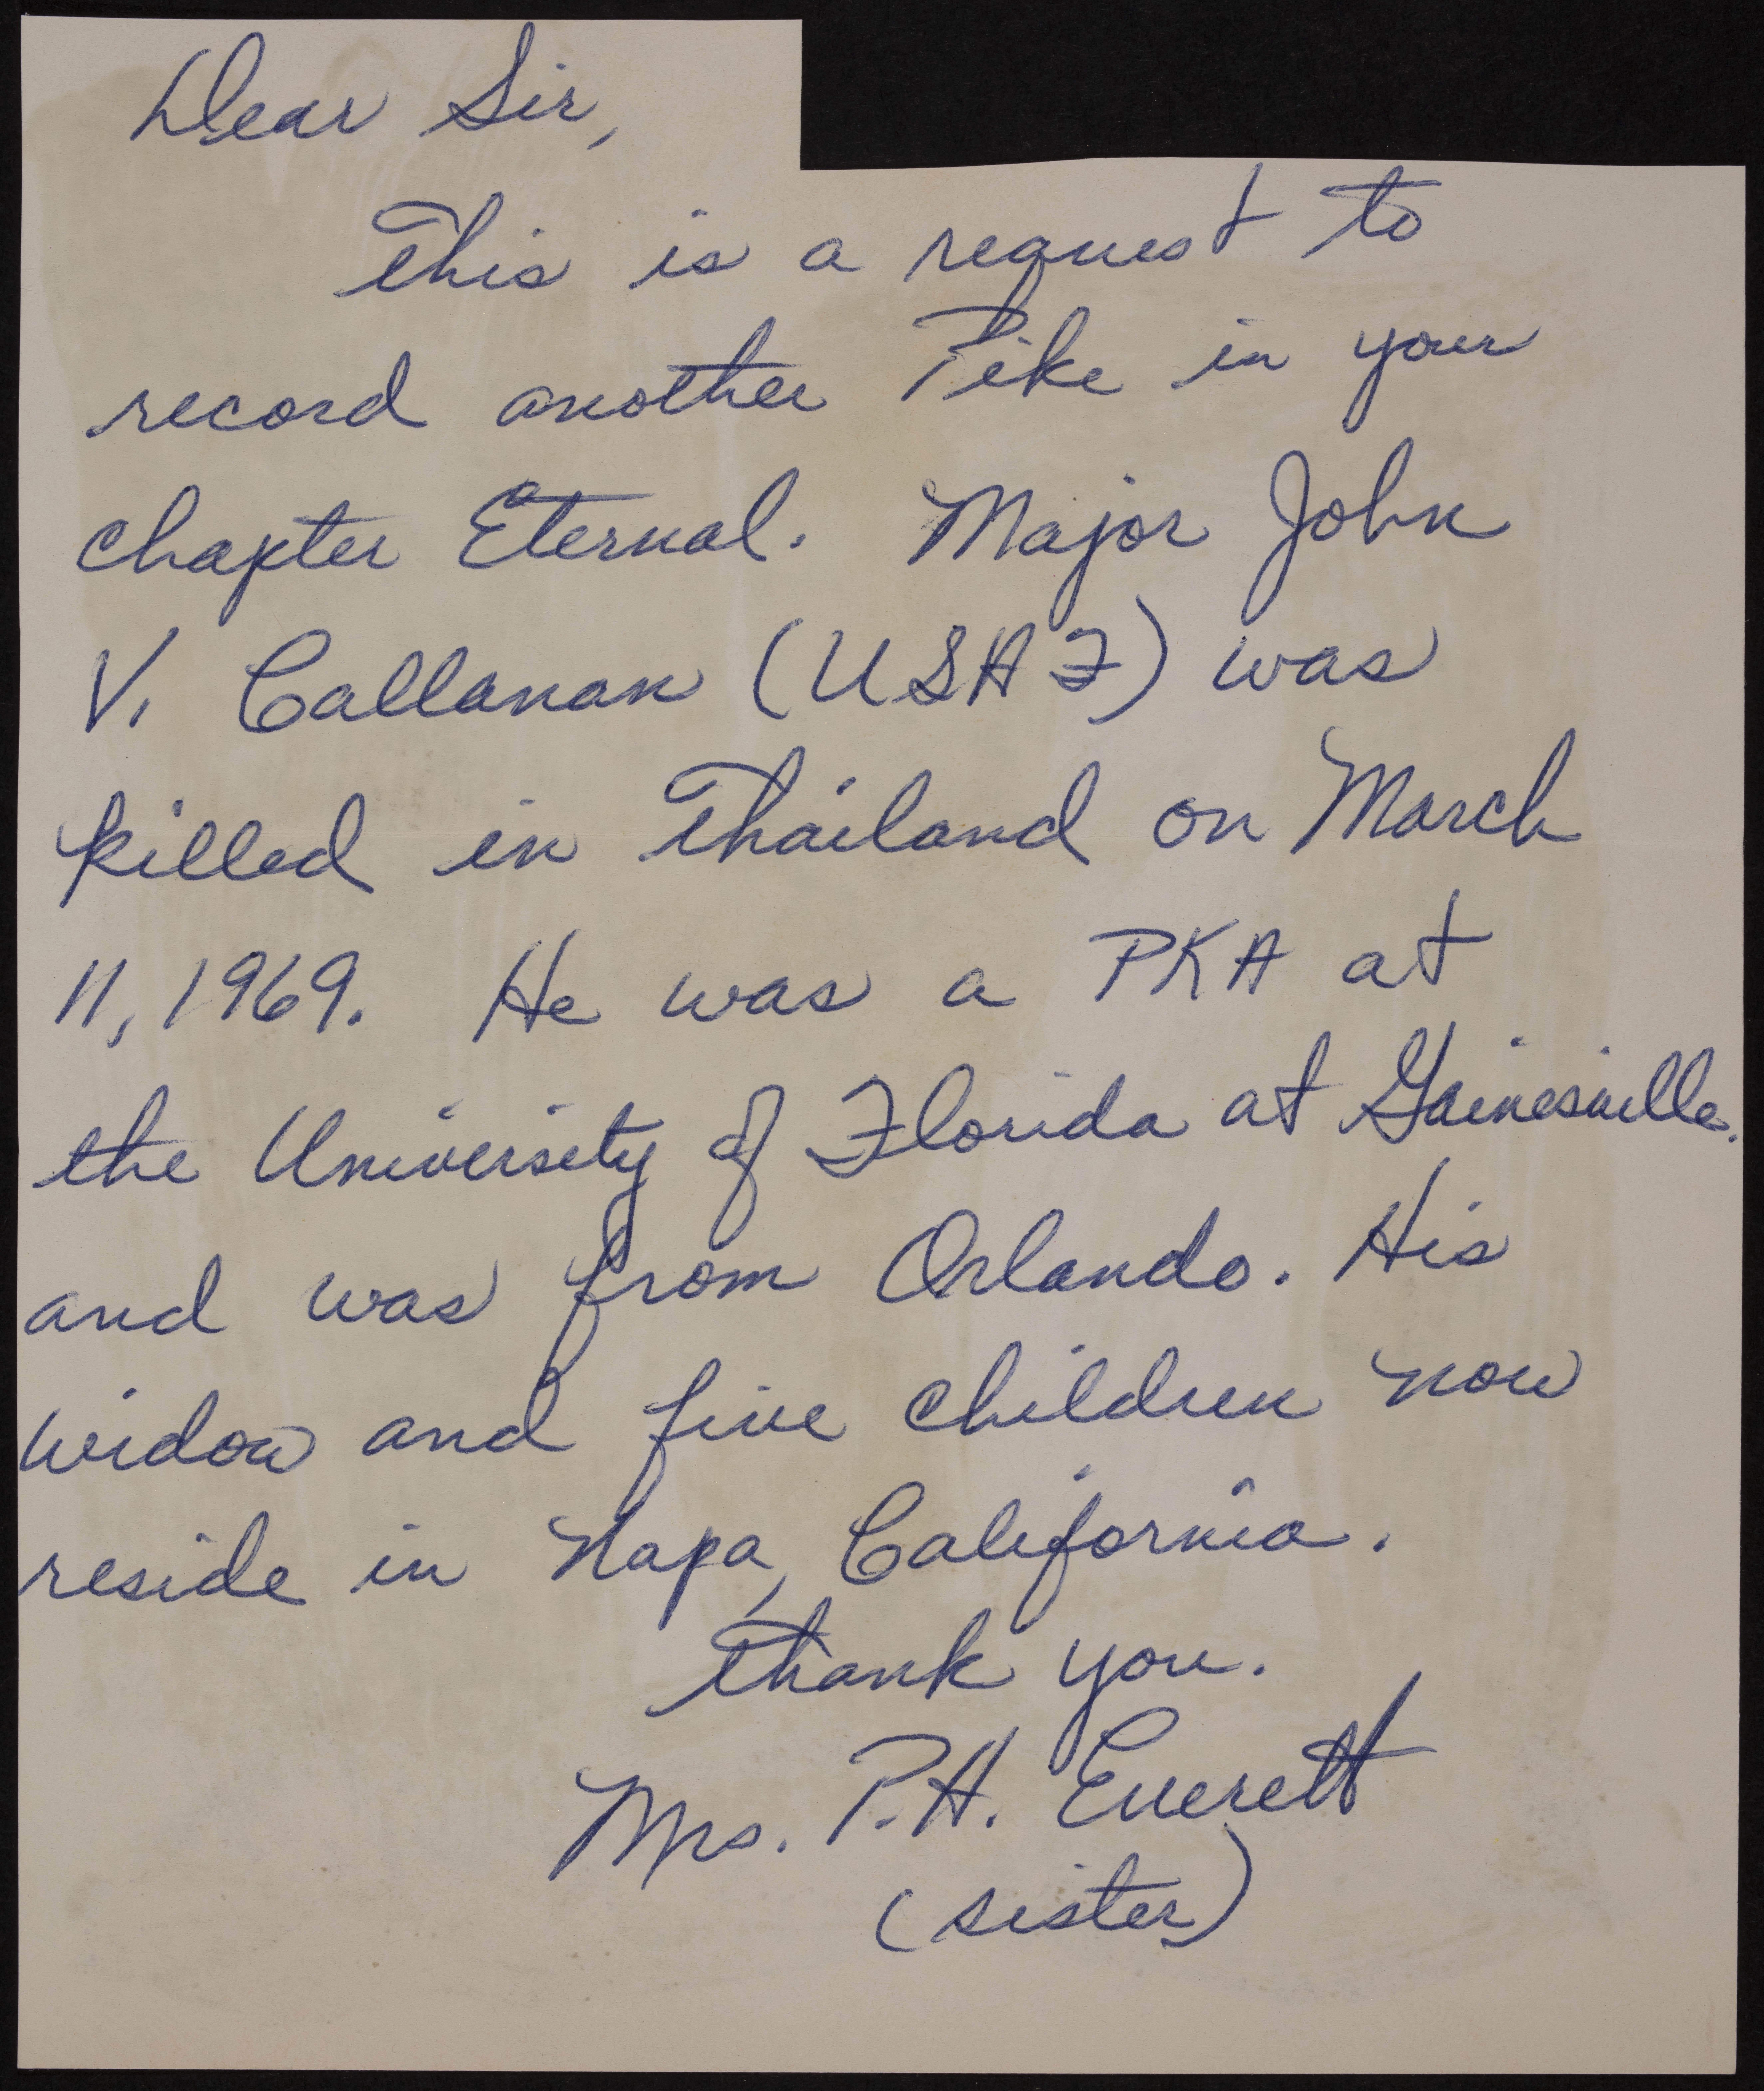 Dear Sir,
This is a request to
record another Pike in your
chapter Eternal. Major John
V. Callanan (USAF) was
killed in Thailand on March
11, 1969. He was a PKA at
the University of Florida at Gainesville.
and was from Orlando. His
widow and five children now
reside in Napa, California.
Thank you.
Mrs. P.H. Everett
(sister)